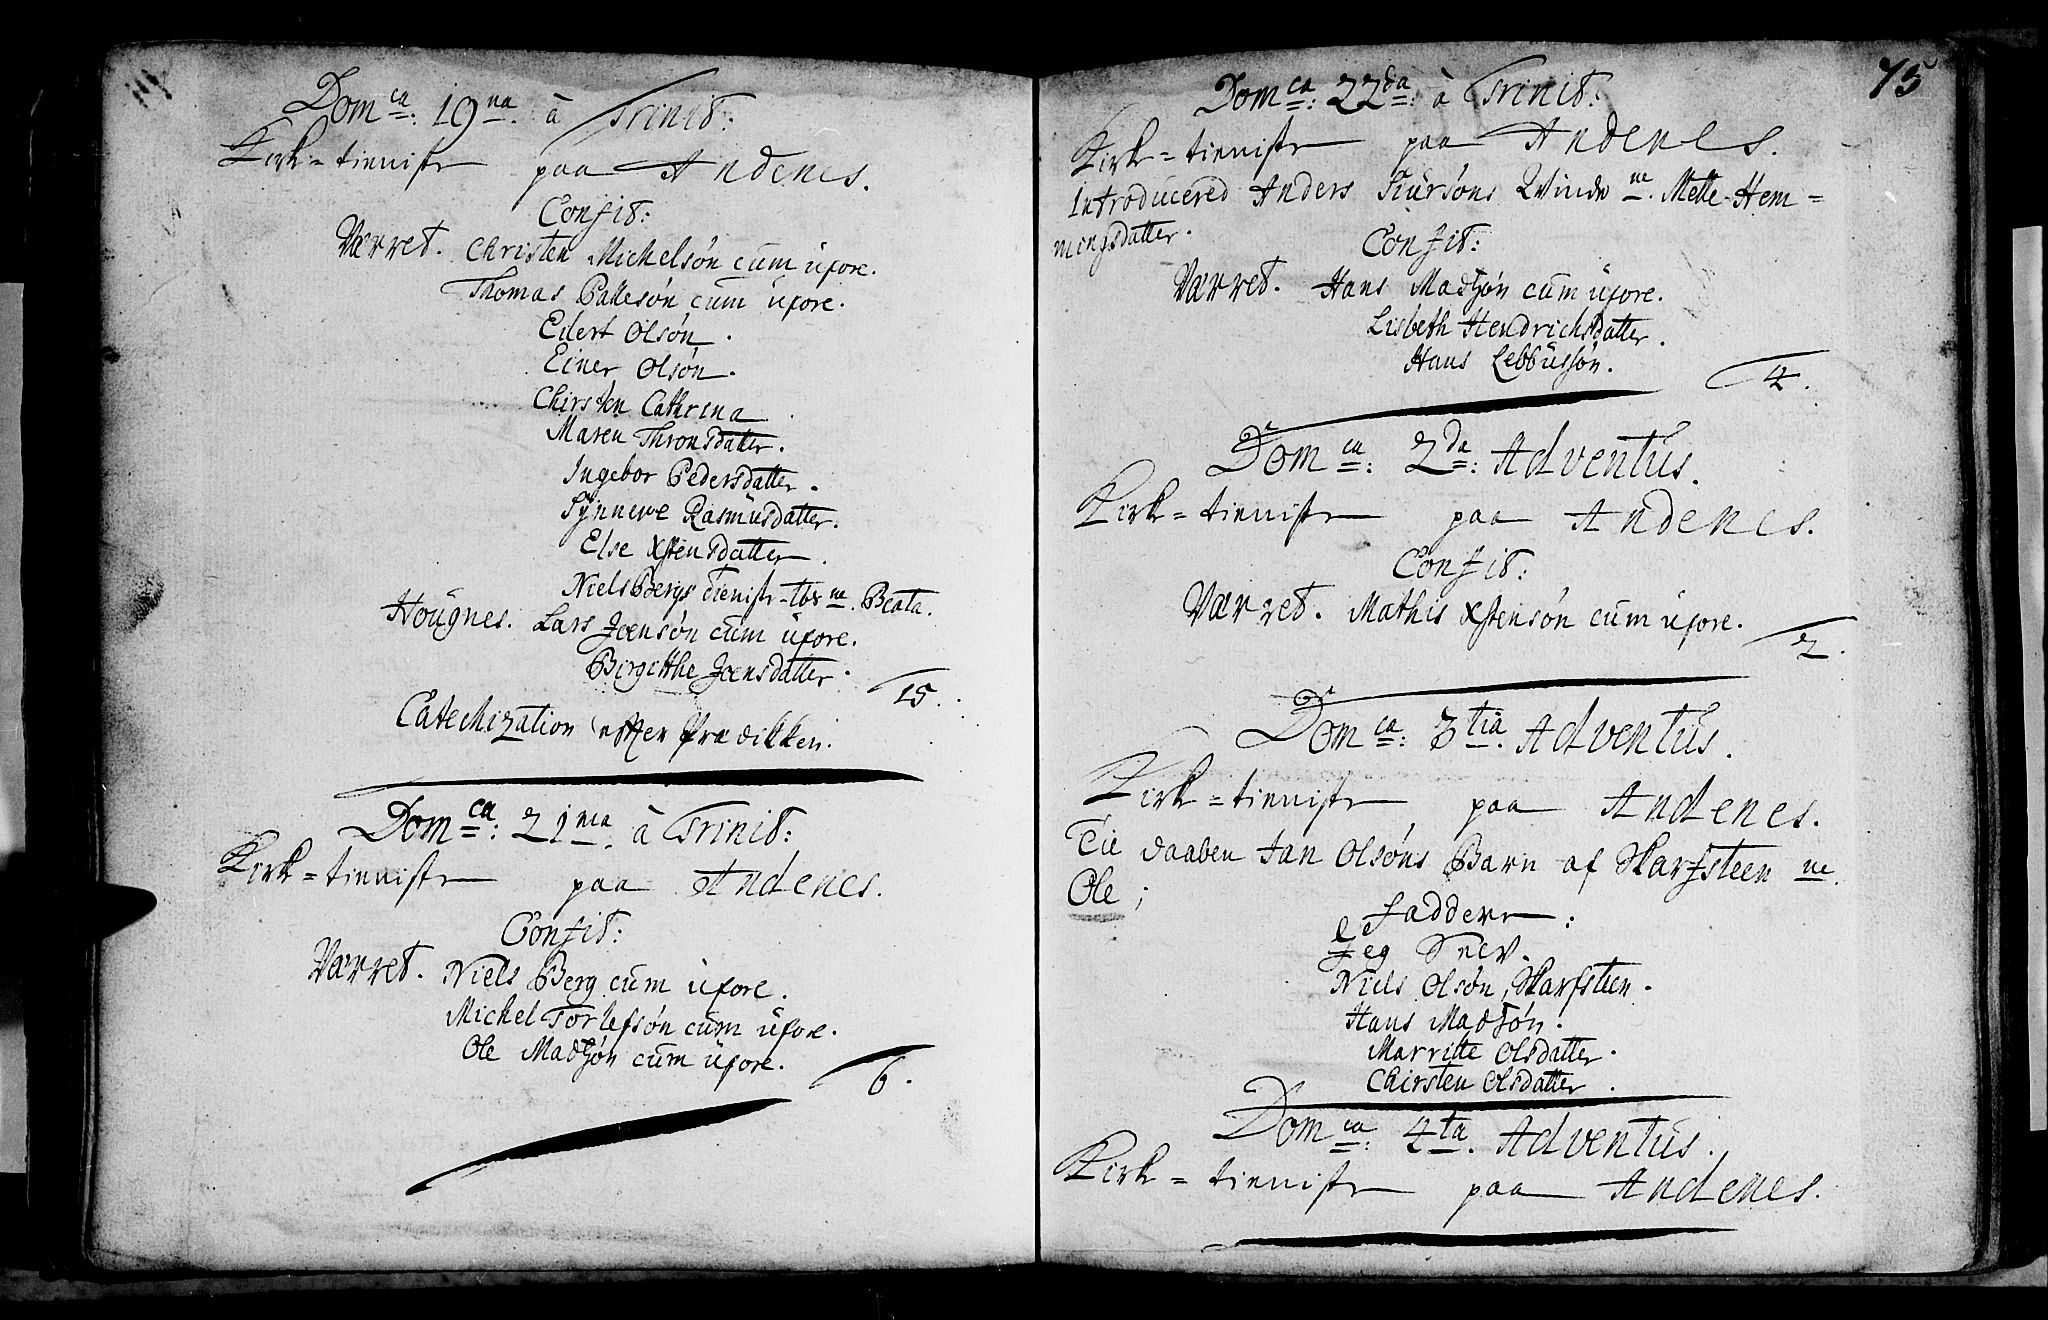 Dom ca: 19 na. à Trinit:
Kirk-tieniste paa Andenes.
Confit:
Værret. Christen Michelsøn cum uxore.
Thomas Pallesøn cum uxore.
Eilert Olsøn.
Einer Olsøn.
Chirsten Cathrina
Maren Thronsdatter.
Ingebor Pedersdatter.
Synnewe Rasmusdatter.
Else Xstensdatter.
Niels Bergs tieniste-tøs ne. Beata.
Høugnes. Lars Joensøn cum uxore.
Birgitthe Joensdatter.
15.
Catechization efter Prædikken.
Dom ca: 21 ma. à Trinit:
Kirk-tieniste paa Andenes.
Confit:
Værret. Niels Berg cum uxore.
Michel Torlefsøn cum uxore.
Ole Madtzøn cum uxore.
6.
75
Dom ca: 22 da: à Trinit:
Kirk-tieniste paa Andenes.
Introducered Anders Siursøns Qvinde ne. Mette Hem=
mingsdatter.
Confit:
Værret. Hans Madtzøn cum uxore.
Lisbeth Hendrichsdatter.
Hans Lebbussøn.
4.
Dom ca: 2 da: Adventus.
Kirk-tieniste paa Andenes.
Confit:
Værret. Mathis Xstensøn cum uxore.
2.
Dom ca: 3 tia. Adventus.
Kirk-tieniste paa Andenes.
Til daaben Jan Olsøns Barn af Skarfsteen ne.
Ole;
Faddere:
Jeg
Niels Olsøn, Skarfsteen.
Hans Madtzøn.
Marritte Olsdatter.
Chirsten Olsdatter.
Dom ca: 4 ta. Adventus.
Kirk-tieniste paa Andenes.